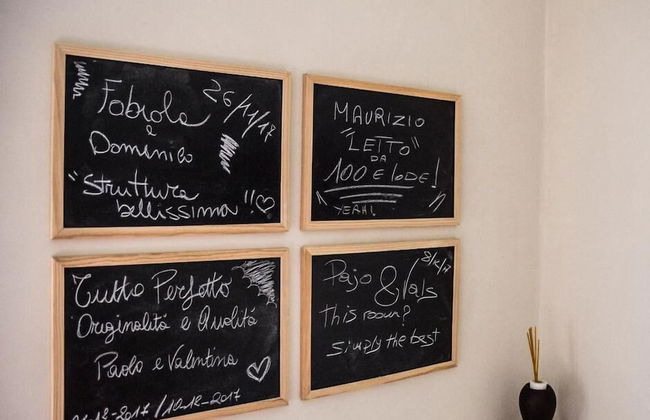 Fabiola
26/11/17
e
Domenico
"Struttura
bellissima"!!
MAURIZIO
"LETTO"
DA
100 E LODE!
YEAH!
Tutto Perfetto
Originalità e Qualità
Paolo e Valentina
12-2017/10-12-2017
Pajo & Vals
this room?
simply the best